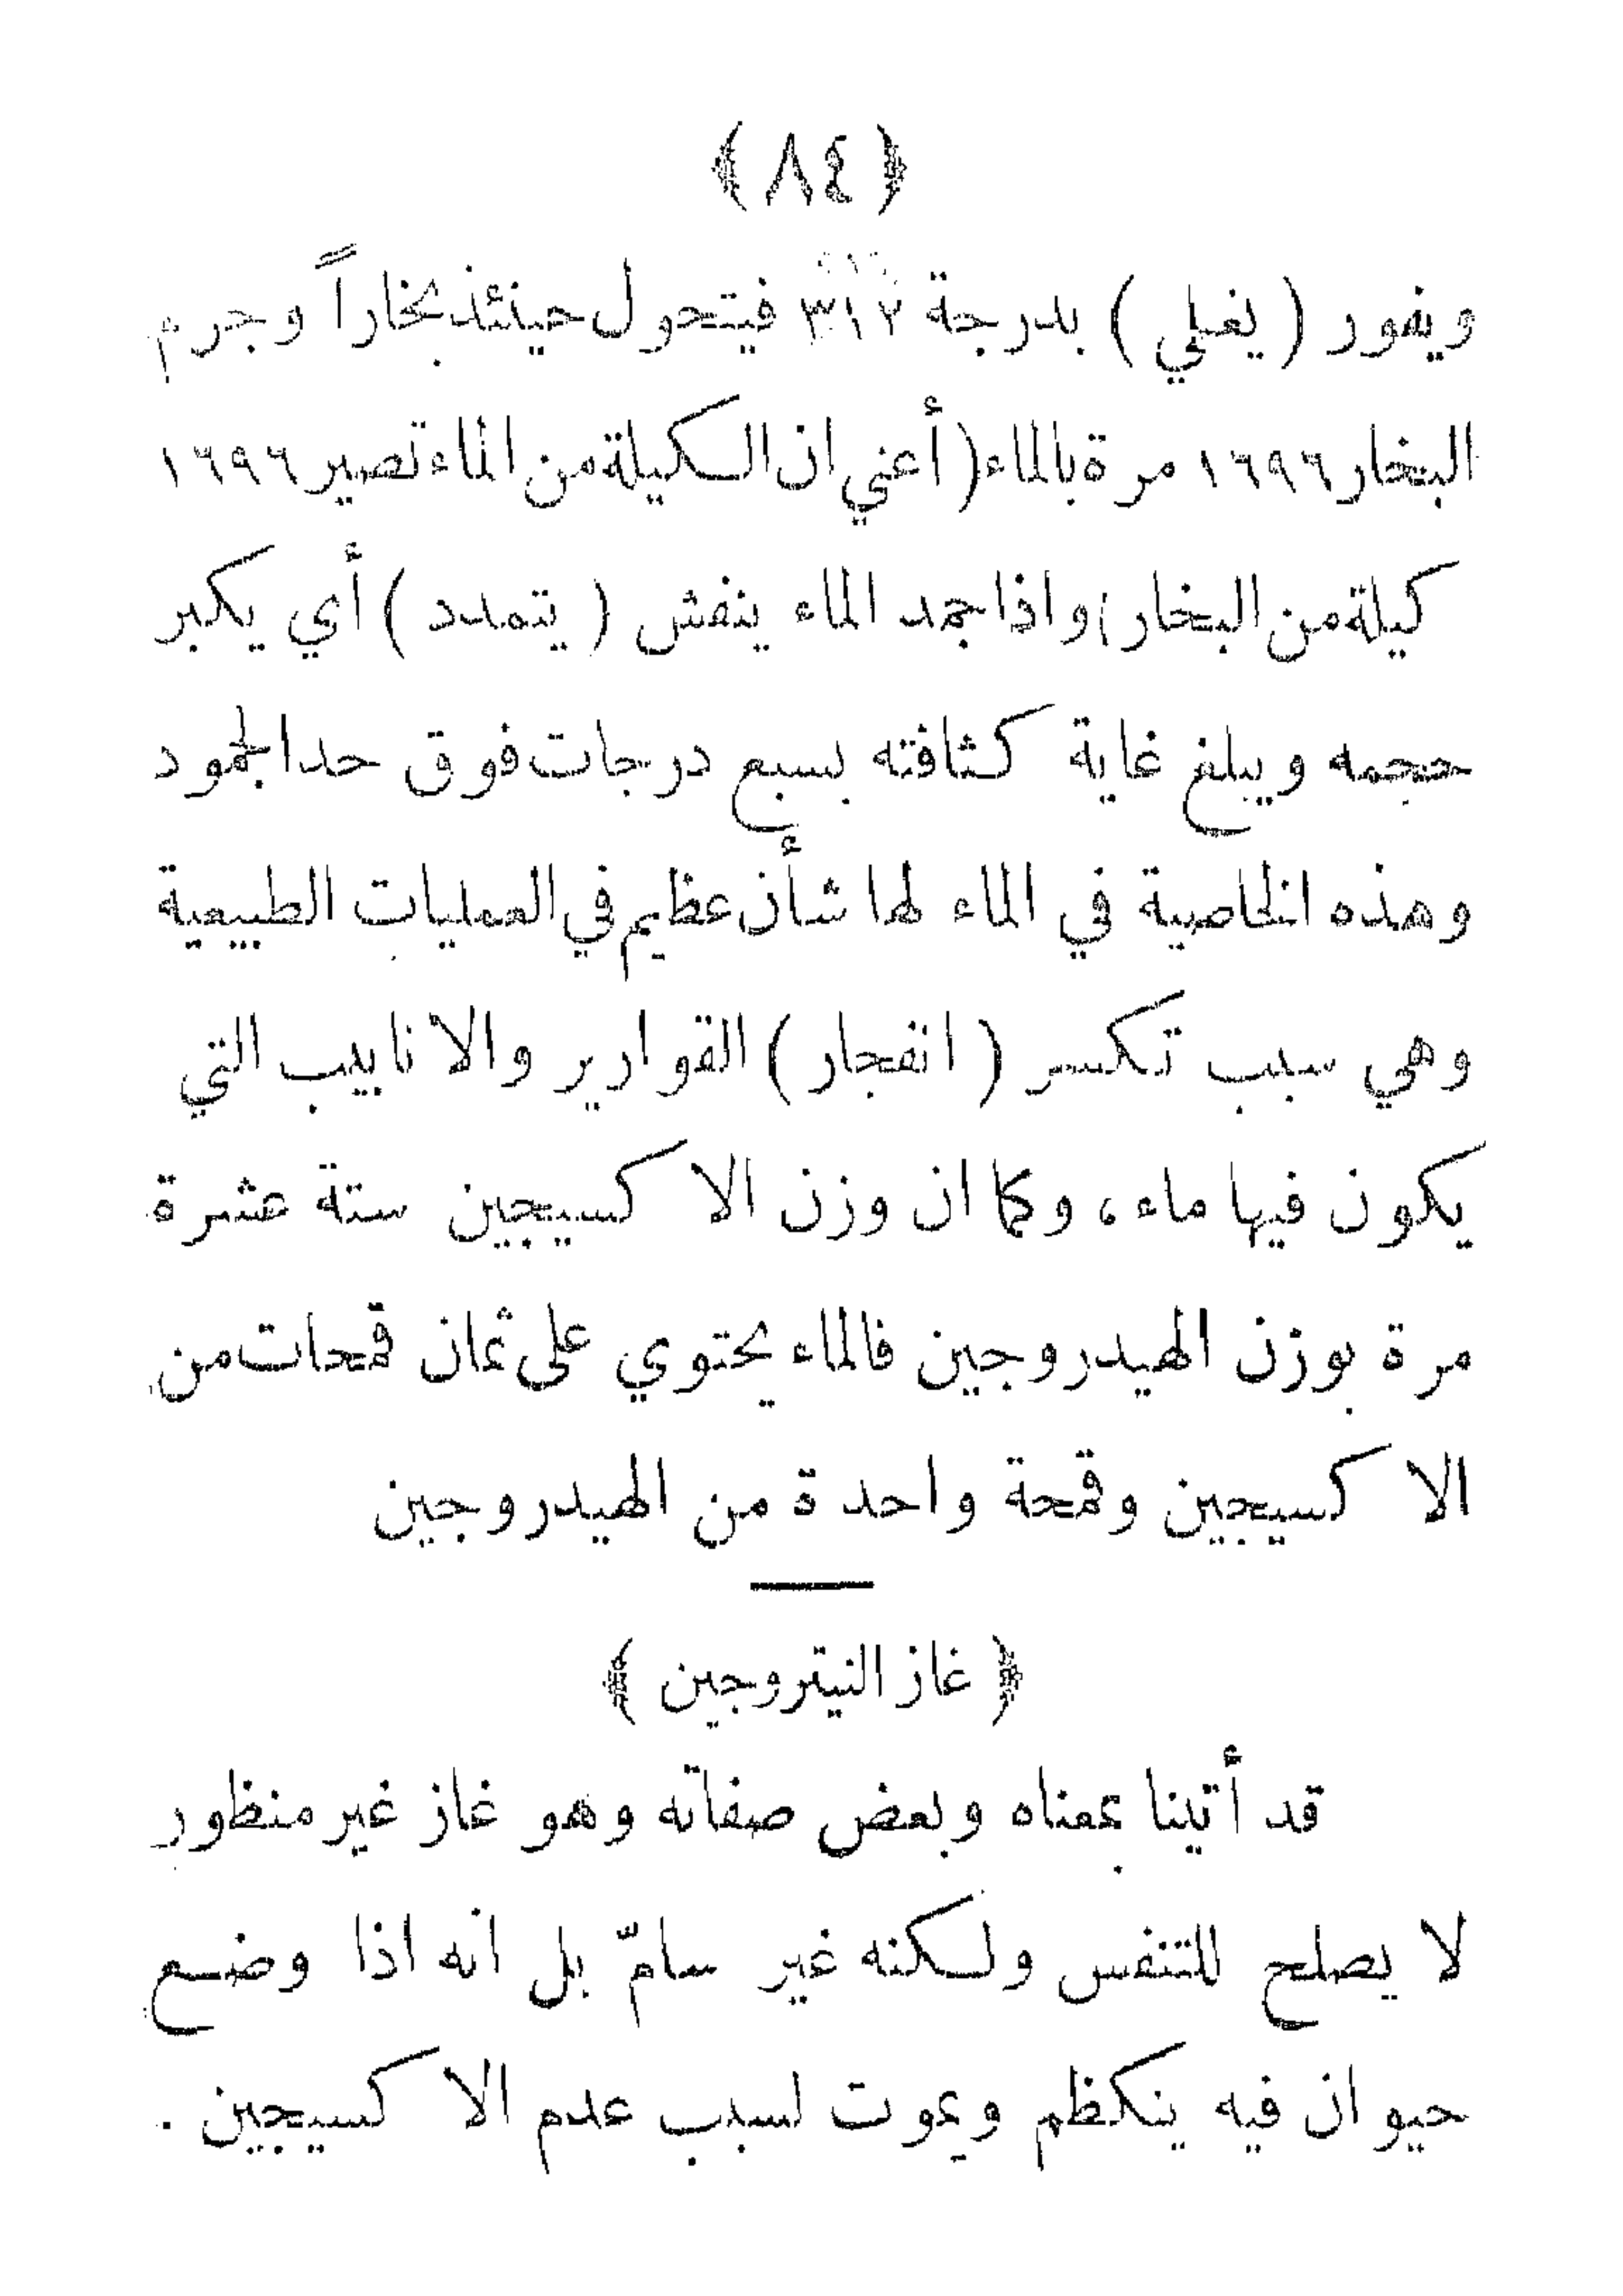 ﴿ ٨٤ ﴾
ويفور ( يغلي ) بدرجة ٣١٢ فيتحول حينئذ بخاراً وجرم
البخار ١٦٩٦ مرة بالماء ( أعني ان الكيلة من الماء تصير ١٦٩٦
كيلة من البخار ) واذا جمد الماء ينفش ( يتمدد ) أي يكبر
حجمه ويبلغ غاية كثافته بسبع درجات فوق حد الجمود
وهذه الخاصية في الماء لها شأن عظيم في العمليات الطبيعية
وهي سبب تكسر ( انفجار ) القوارير والانابيب التي
يكون فيها ماء ، وكما ان وزن الاكسيجين ستة عشرة
مرة بوزن الهيدروجين فالماء يحتوي على ثمان قمحات من
الاكسيجين وقمحة واحدة من الهيدروجين
﴿ غاز النيتروجين ﴾
قد أتينا بمعناه وبعض صفاته وهو غاز غير منظور
لا يصلح للتنفس ولكنه غير سامّ بل انه اذا وضع
حيوان فيه ينكظم ويموت لسبب عدم الاكسيجين .